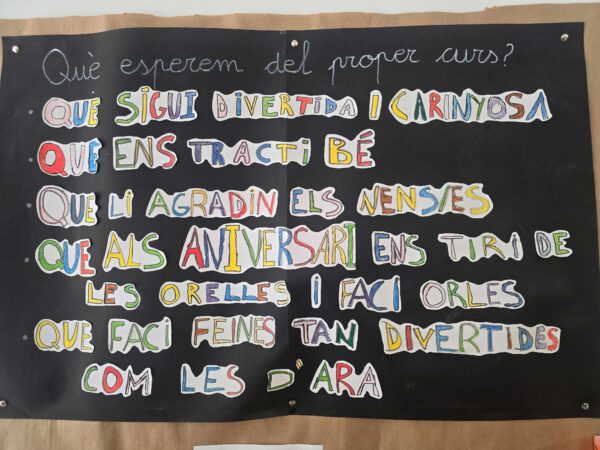 Què esperem del proper curs?
QUE SIGUI DIVERTIDA I CARINYOSA
QUE ENS TRACTI BÉ
QUE LI AGRADIN ELS NENS/ES
QUE ALS ANIVERSARI ENS TIRI DE
LES ORELLES I FACI ORLES
QUE FACI FEINES TAN DIVERTIDES
COM LES D'ARA